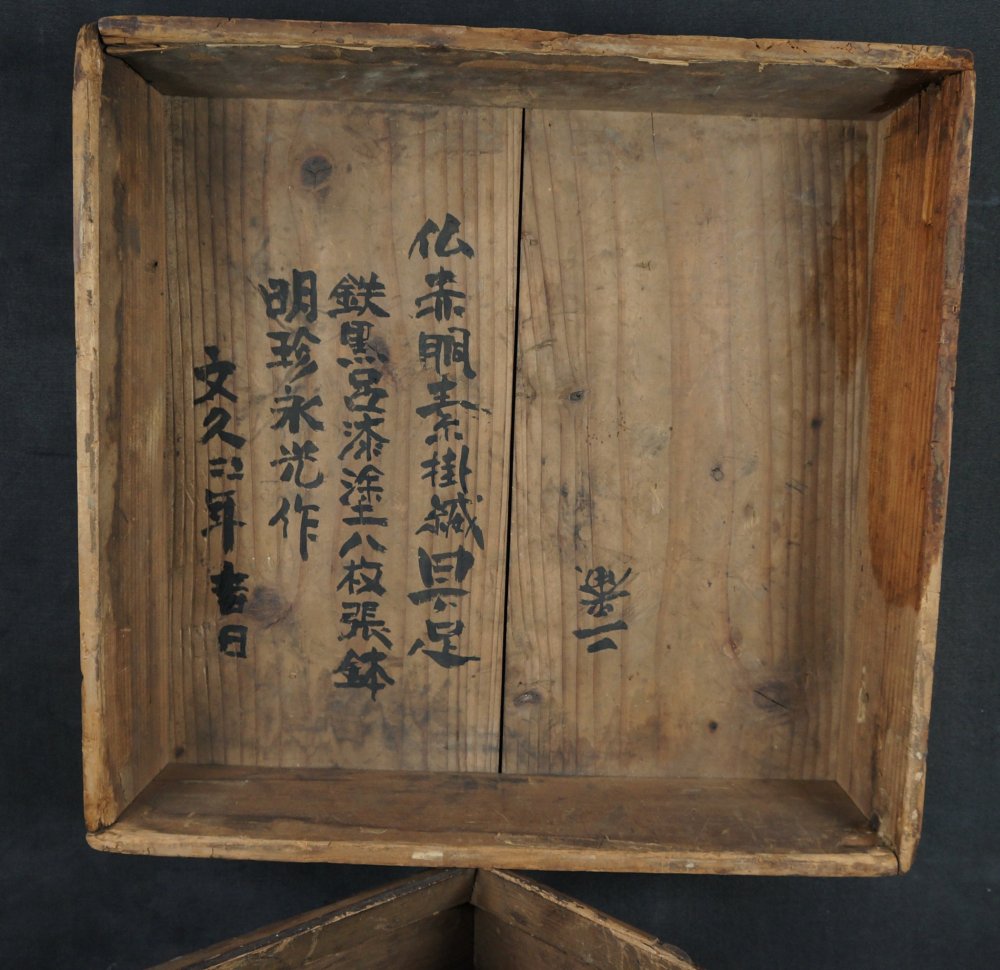 二番
仏赤胴素掛縅具足
鉄黒呂漆塗八枚張鉢
明珍永光作
文久二二年吉日